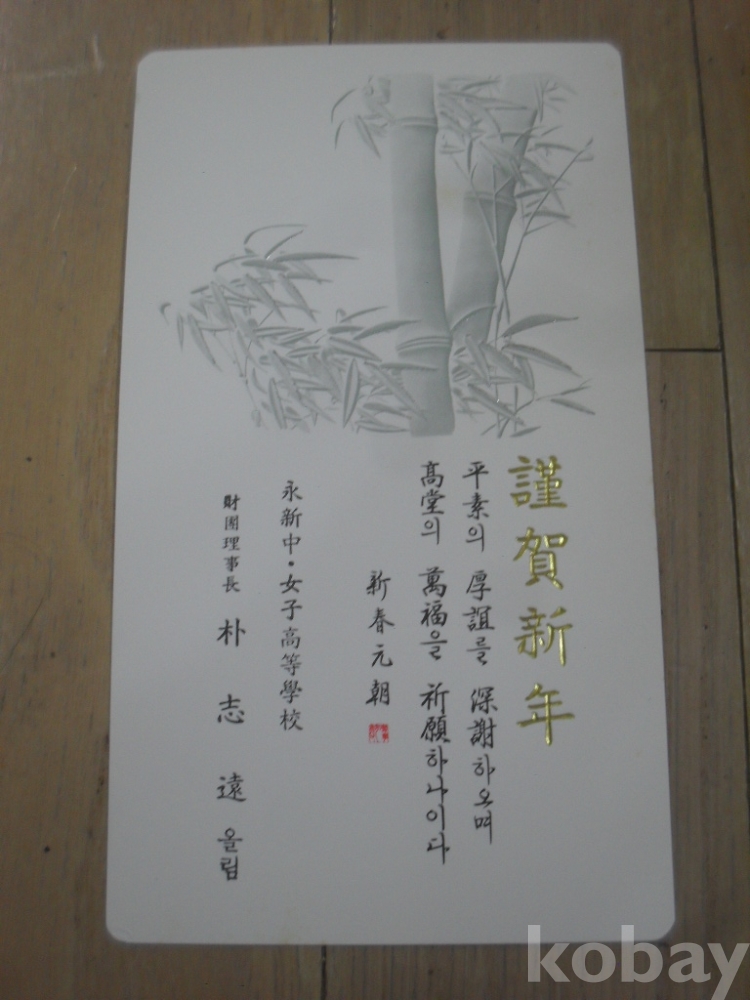 謹賀新年
平素의 厚誼를 深謝하오며
高堂의 萬福을 祈願하나이다
新春元朝
永新中·女子高等學校
財團理事長 朴志遠 올림
kobay